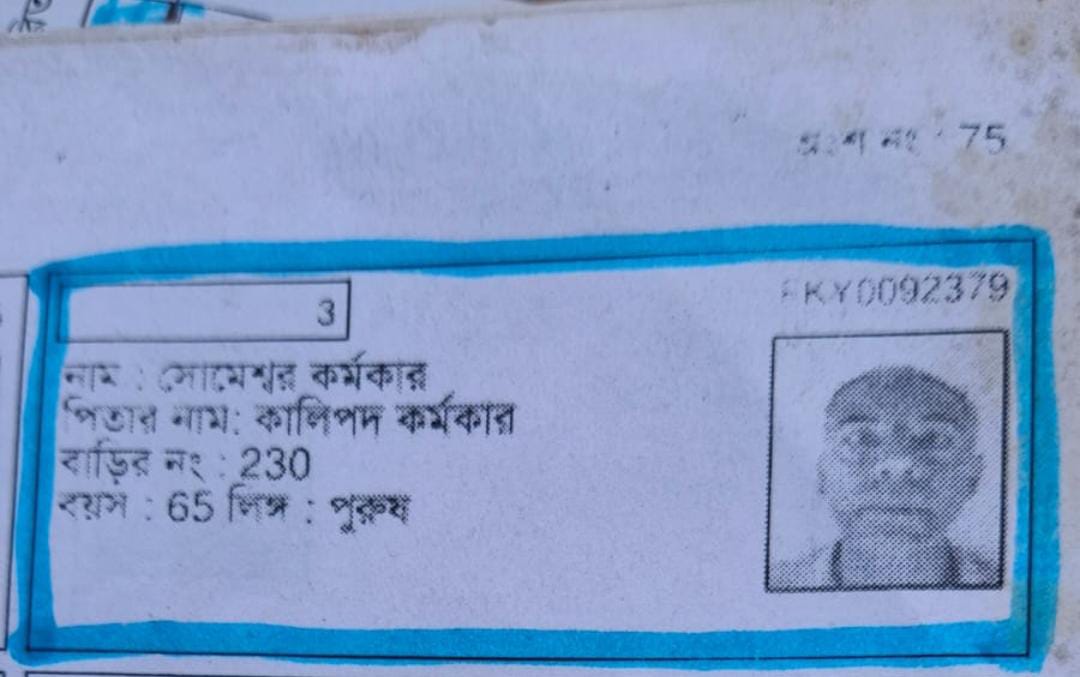 অংশ নং : 75
3
KY0092379
নাম : সোমেশ্বর কর্মকার
পিতার নাম: কালিপদ কর্মকার
বাড়ির নং : 230
বয়স : 65 লিঙ্গ : পুরুষ